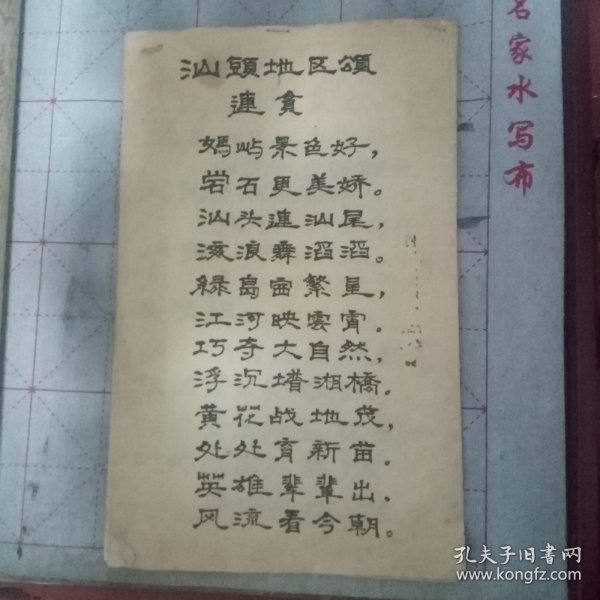 汕頭地区頌
連貪
妈屿景色好，
礐石更美娇。
汕头連汕尾，
海浪舞滔滔。
綠島雷繁星，
江河映雲霄。
巧夺大自然，
浮沉塔湘橋。
黄花战地茂，
处处育新苗。
英雄辈辈出，
风流看今朝。
名家水写布
孔夫子旧书网
www.kongfz.com